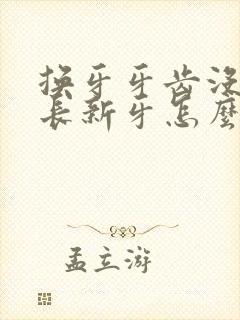 换牙牙齿没
长新牙怎麼
孟立游